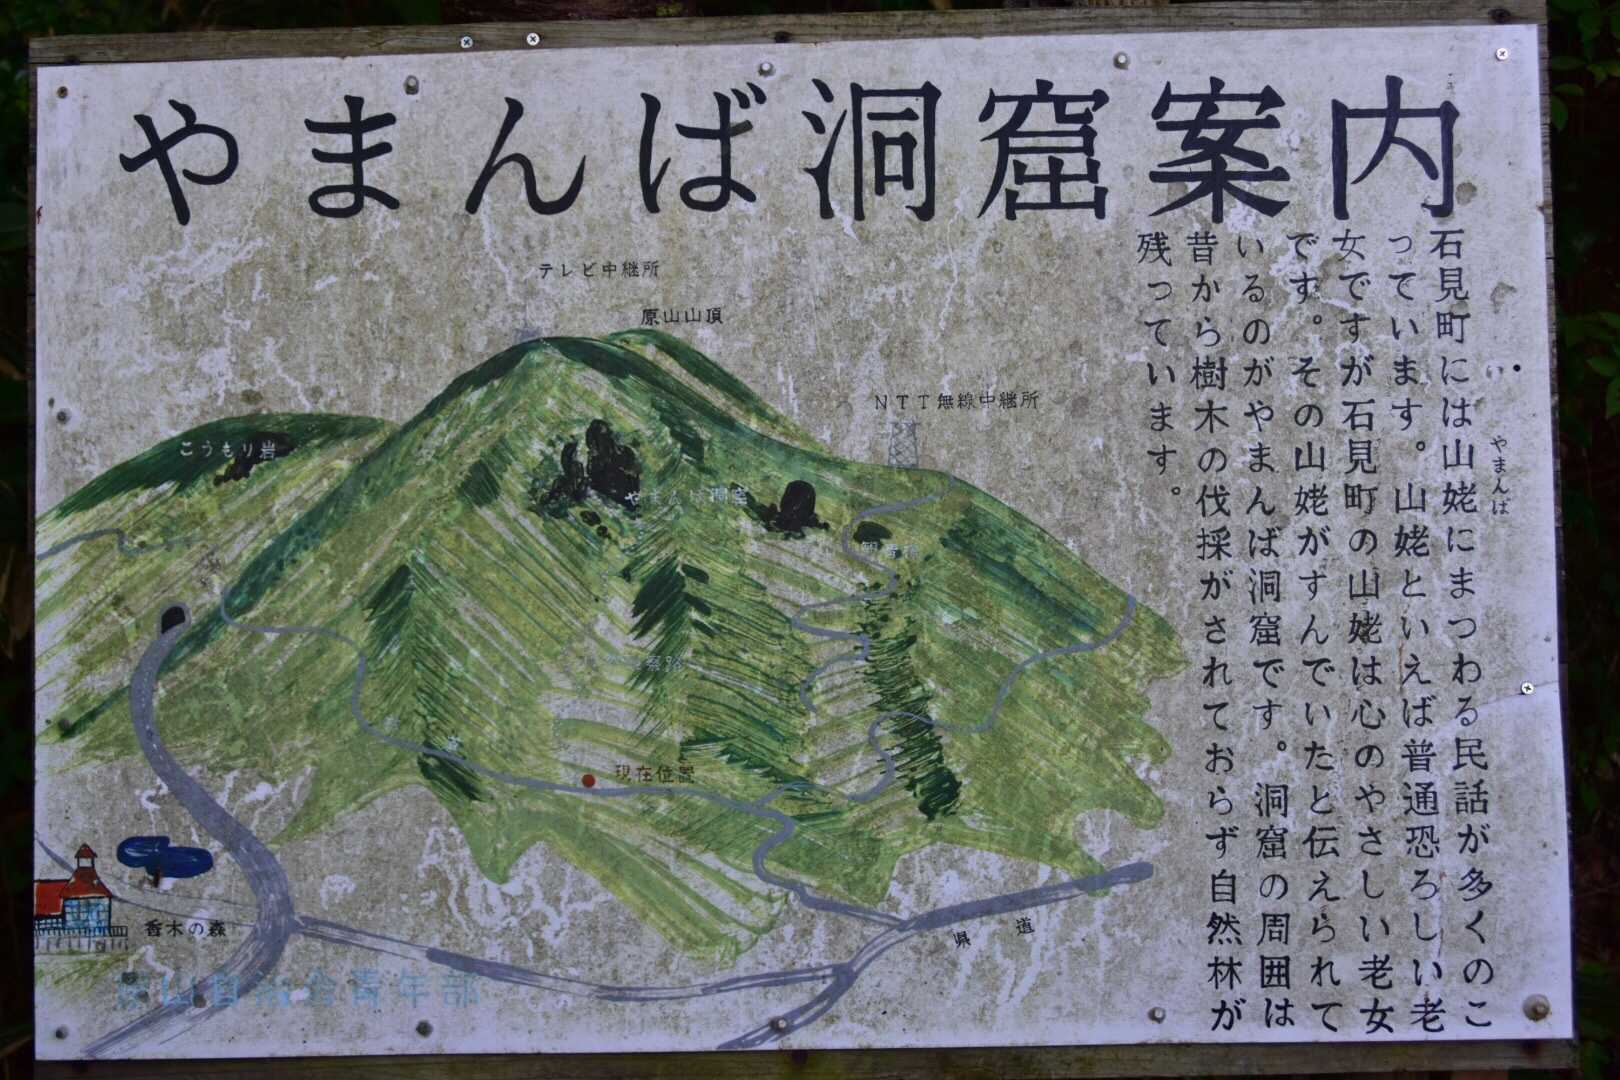 やまんば洞窟案内
石見町には山姥にまつわる民話が多くのこ
やまんば
っています。山姥といえば普通恐ろしい老
女ですが石見町の山姥は心のやさしい老女
です。その山姥がすんでいたと伝えられて
いるのがやまんば洞窟です。洞窟の周囲は
昔から樹木の伐採がされておらず自然林が
残っています。
テレビ中継所
原山山頂
NTT無線中継所
こうもり岩
やまんば洞窟
現在位置
香木の森
県道
原山自治会青年部